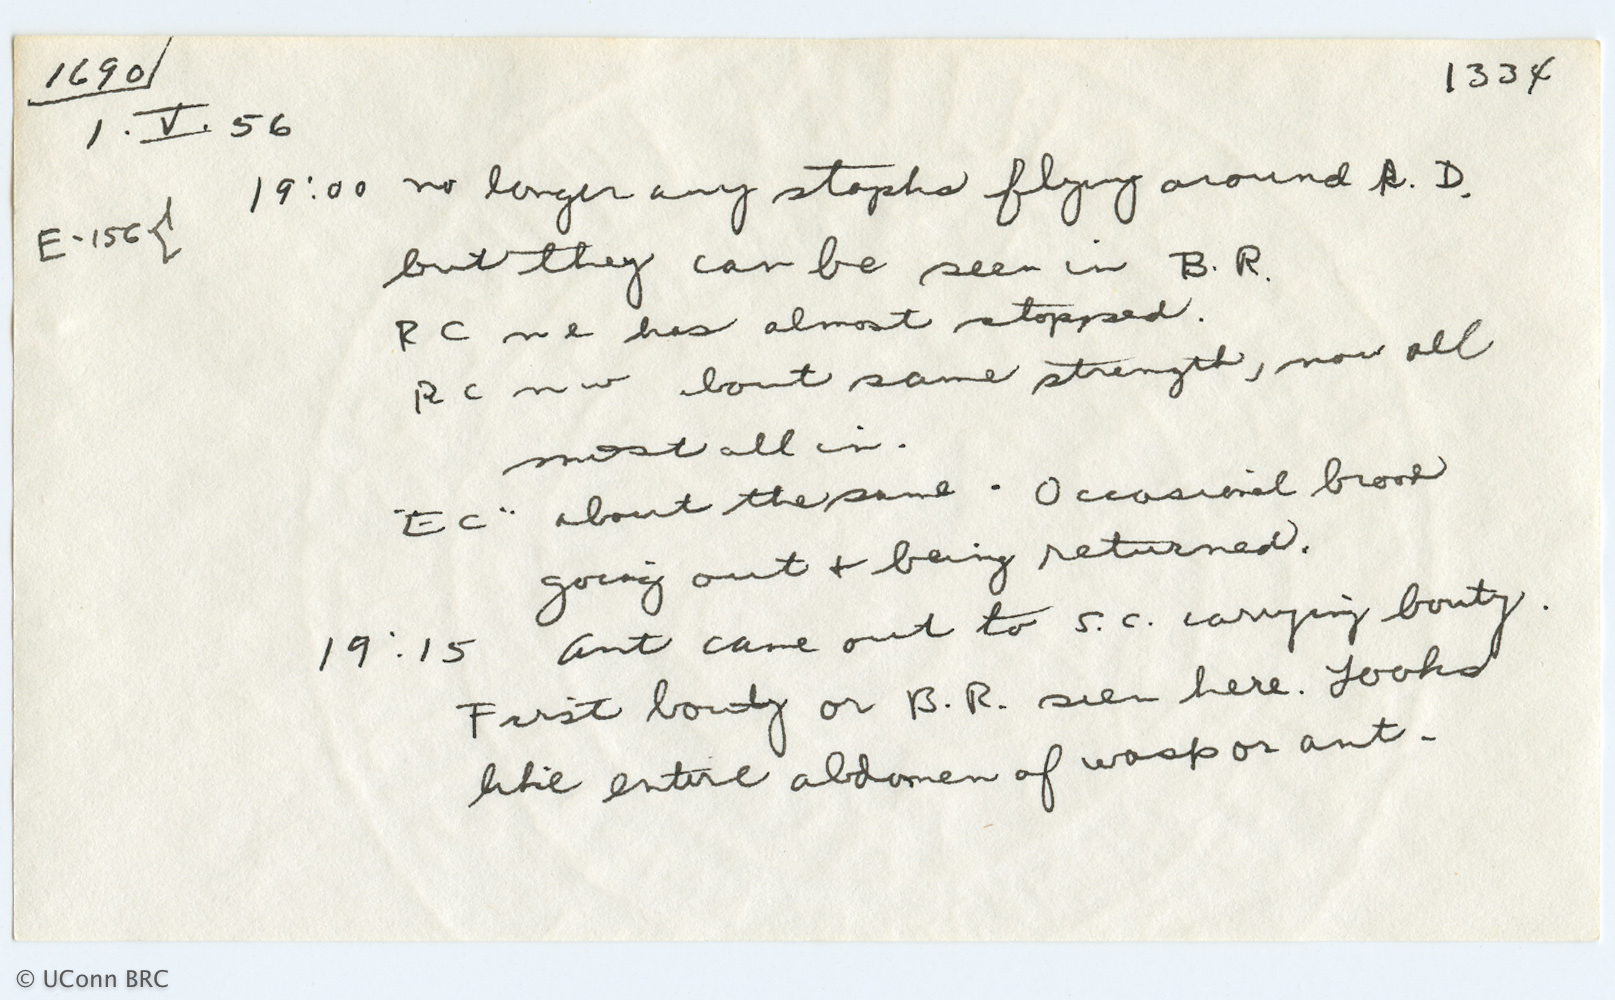 1690 1334
1.V.56
19:00 no longer any staphs flying around R. D.
E-156{
but they can be seen in B. R.
RC ne has almost stopped.
RC nw bout same strength, now all
most all in.
"EC" about the same. Occasional brood
going out + being returned.
19:15 Ant came out to S.C. carrying booty.
First booty or B.R. seen here. Looks
like entire abdomen of wasp or ant.
© UConn BRC